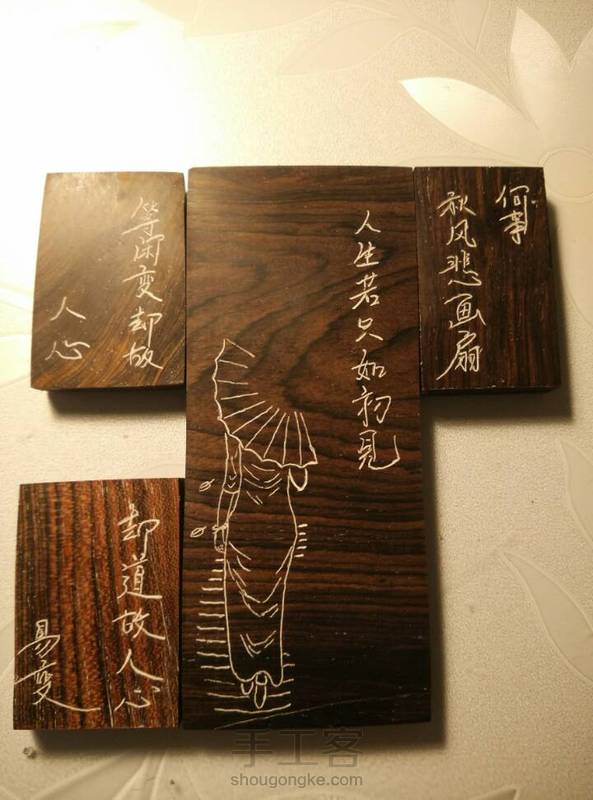 人生若只如初见
何事
秋风悲画扇
等闲变却故
人心
却道故人心
易变
手工客
shougongke.com